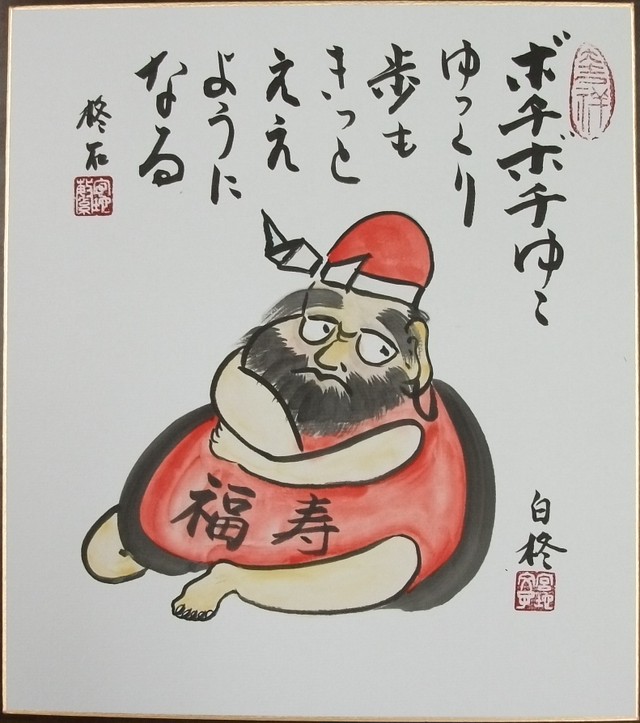 ボチボチゆこ
ゆっくり
歩も
きっと
ええ
ように
なる
柊石
福寿
白柊